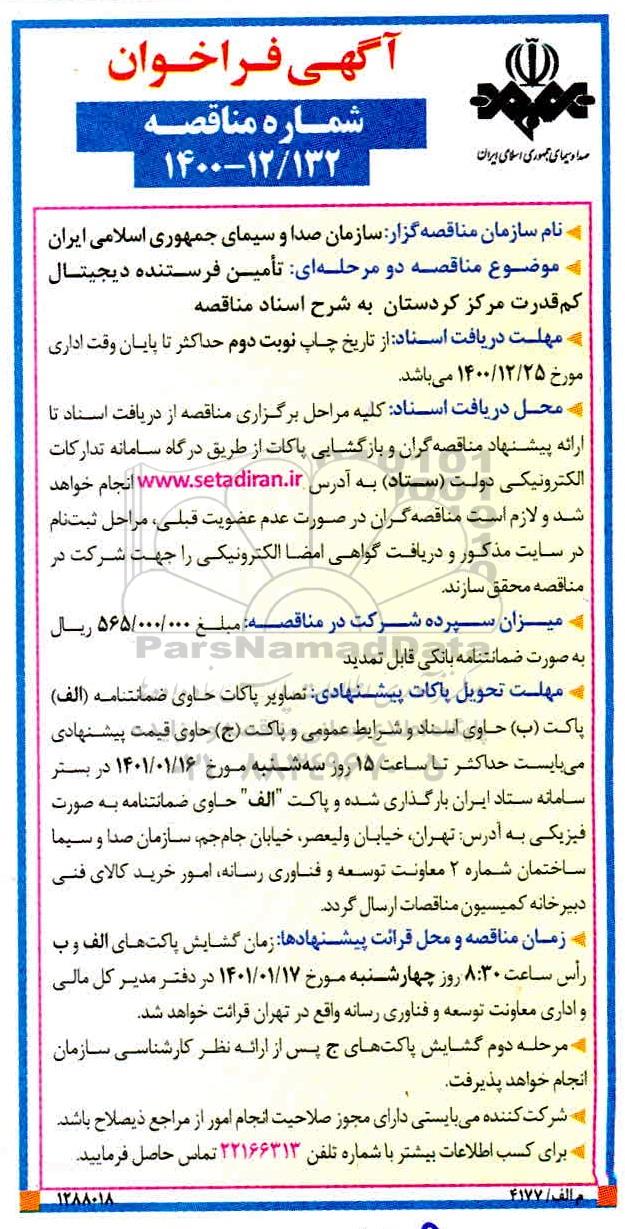 آگهی فراخوان
شماره مناقصه
۱۴۰۰-۱۲/۱۳۲
صدا و سیمای جمهوری اسلامی ایران
نام سازمان مناقصه‌گزار: سازمان صدا و سیمای جمهوری اسلامی ایران
موضوع مناقصه دو مرحله‌ای: تأمین فرستنده دیجیتال
کم‌قدرت مرکز کردستان به شرح اسناد مناقصه
مهلت دریافت اسناد: از تاریخ چاپ نوبت دوم حداکثر تا پایان وقت اداری
مورخ ۱۴۰۰/۱۲/۲۵ می‌باشد.
محل دریافت اسناد: کلیه مراحل برگزاری مناقصه از دریافت اسناد تا
ارائه پیشنهاد مناقصه‌گران و بازگشایی پاکات از طریق درگاه سامانه تدارکات
الکترونیکی دولت (ستاد) به آدرس www.setadiran.ir انجام خواهد
شد و لازم است مناقصه‌گران در صورت عدم عضویت قبلی، مراحل ثبت‌نام
در سایت مذکور و دریافت گواهی امضا الکترونیکی را جهت شرکت در
مناقصه محقق سازند.
میزان سپرده شرکت در مناقصه: مبلغ ۵۶۵/۰۰۰/۰۰۰ ریال
به صورت ضمانتنامه بانکی قابل تمدید
ParsNamadData
مهلت تحویل پاکات پیشنهادی: تصاویر پاکات حاوی ضمانتنامه (الف)
پاکت (ب) حاوی اسناد و شرایط عمومی و پاکت (ج) حاوی قیمت پیشنهادی
می‌بایست حداکثر تا ساعت ۱۵ روز سه‌شنبه مورخ ۱۴۰۱/۰۱/۱۶ در بستر
سامانه ستاد ایران بارگذاری شده و پاکت "الف" حاوی ضمانتنامه به صورت
فیزیکی به آدرس: تهران، خیابان ولیعصر، خیابان جام‌جم، سازمان صدا و سیما
ساختمان شماره ۲ معاونت توسعه و فناوری رسانه، امور خرید کالای فنی
دبیرخانه کمیسیون مناقصات ارسال گردد.
زمان مناقصه و محل قرائت پیشنهادها: زمان گشایش پاکت‌های الف و ب
رأس ساعت ۸:۳۰ روز چهارشنبه مورخ ۱۴۰۱/۰۱/۱۷ در دفتر مدیر کل مالی
و اداری معاونت توسعه و فناوری رسانه واقع در تهران قرائت خواهد شد.
مرحله دوم گشایش پاکت‌های ج پس از ارائه نظر کارشناسی سازمان
انجام خواهد پذیرفت.
شرکت‌کننده می‌بایستی دارای مجوز صلاحیت انجام امور از مراجع ذیصلاح باشد.
برای کسب اطلاعات بیشتر با شماره تلفن ۲۲۱۶۶۳۱۳ تماس حاصل فرمایید.
م الف/ ۴۱۷۷
۱۲۸۸۰۱۸